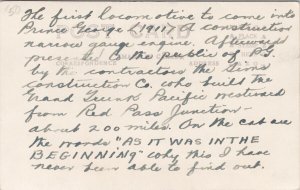 (51)
The first locomotive to come into
Prince George (1911?) A construction
narrow gauge engine. Afterwards
presented to the public of P.G.
by the contractors the Sems
construction Co. who built the
Grand Trunk Pacific westward
from Red Pass Junction—
about 200 miles. On the cab are
the words "AS IT WAS IN THE
BEGINNING" why this I have
never been able to find out.